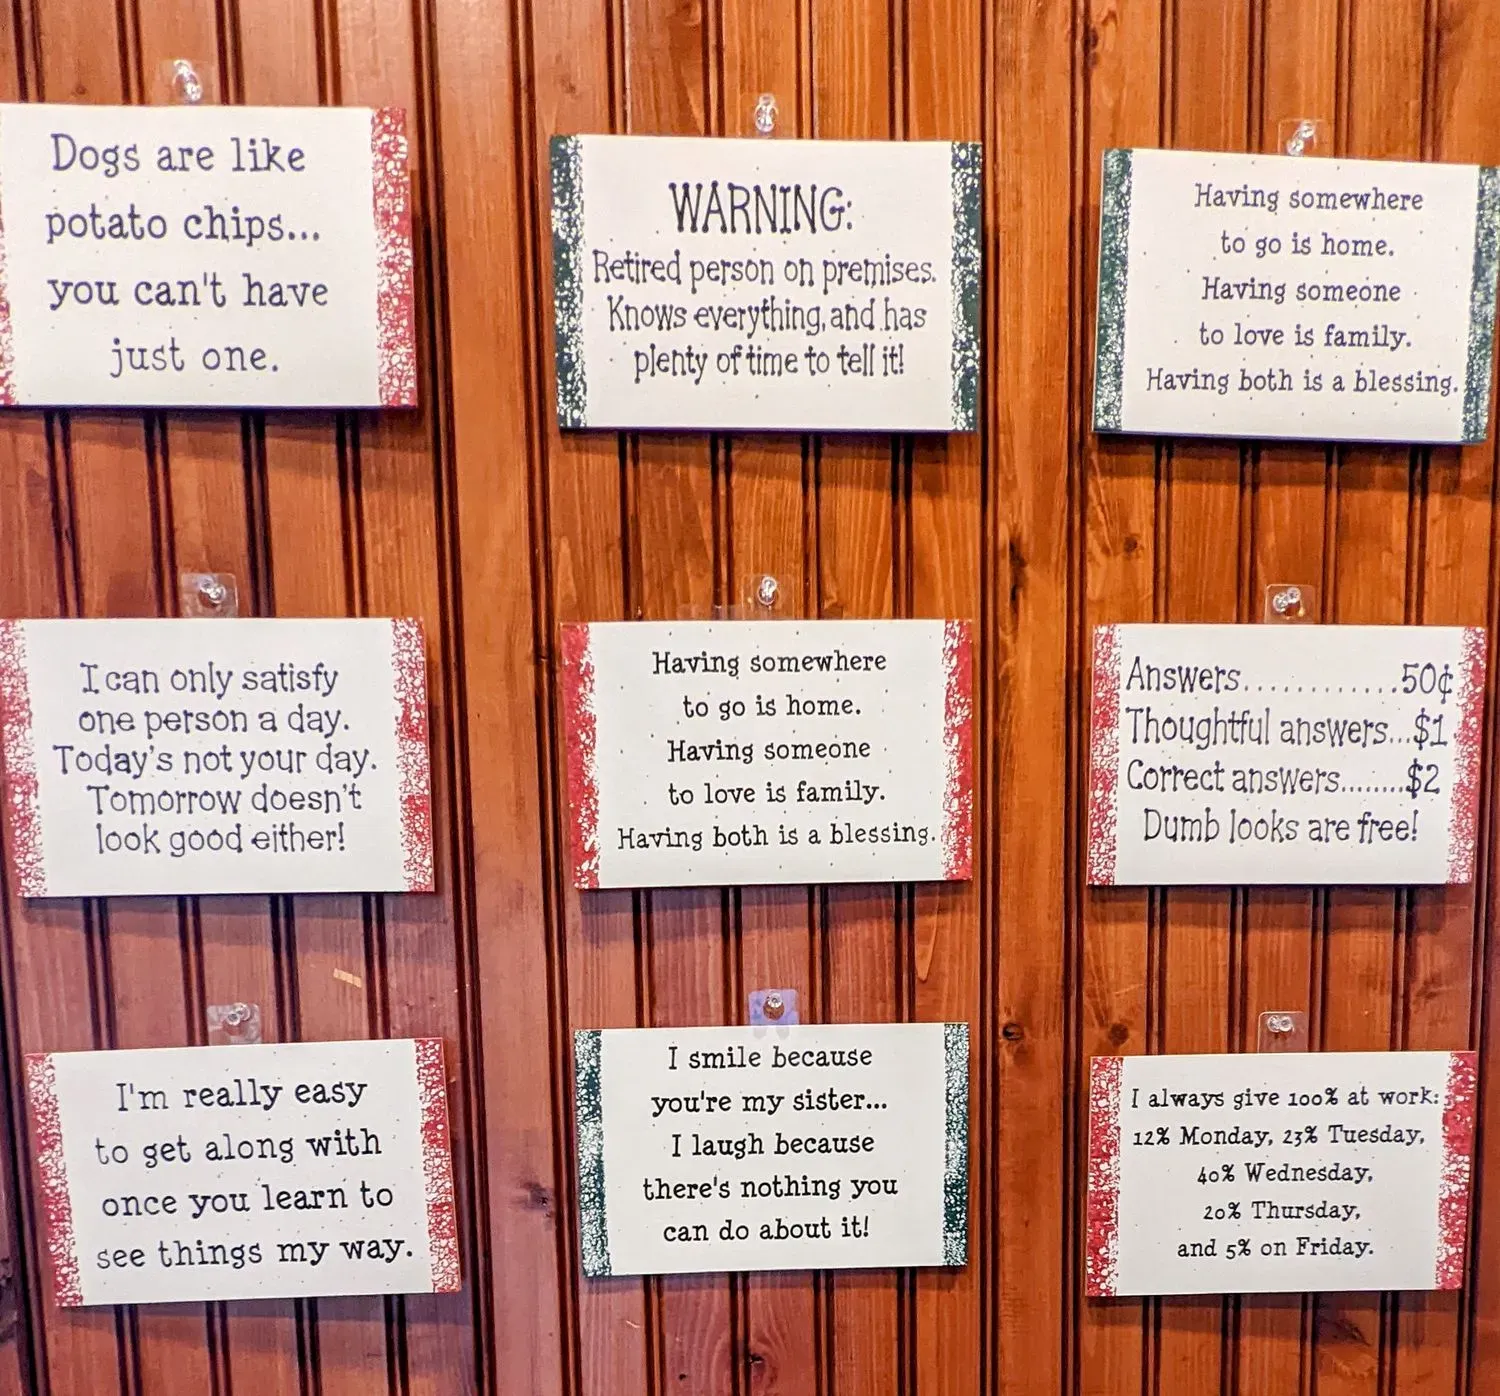 Dogs are like
potato chips...
you can't have
just one.
WARNING:
Retired person on premises.
Knows everything, and has
plenty of time to tell it!
Having somewhere
to go is home.
Having someone
to love is family.
Having both is a blessing.
I can only satisfy
one person a day.
Today's not your day.
Tomorrow doesn't
look good either!
Having somewhere
to go is home.
Having someone
to love is family.
Having both is a blessing.
Answers............50¢
Thoughtful answers...$1
Correct answers........$2
Dumb looks are free!
I'm really easy
to get along with
once you learn to
see things my way.
I smile because
you're my sister...
I laugh because
there's nothing you
can do about it!
I always give 100% at work:
12% Monday, 23% Tuesday,
40% Wednesday,
20% Thursday,
and 5% on Friday.